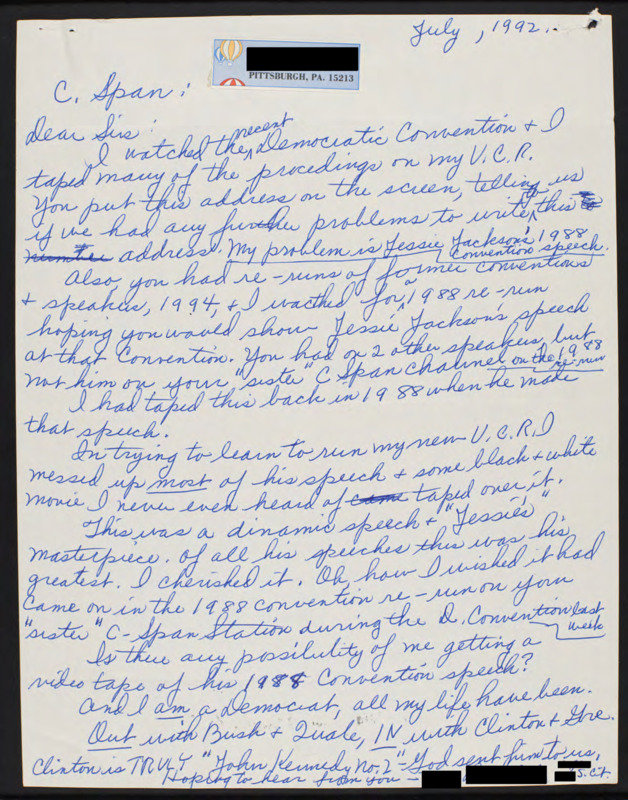 July , 1992.
PITTSBURGH, PA. 15213
C. Span:
Dear Sirs:
I watched the recent Democratic Convention & I
taped many of the procedings on my V.C.R.
You put this address on the screen, telling us
if we had any further problems to write to this
address. My problem is Jessie Jackson's 1988
Convention speech.
Also, you had re-runs of former conventions
& speakers, 1994, & I wacthed for a 1988 re-run
hoping you would show Jessie Jackson's speech
at that Convention. You had on 2 other speakers, but
not him on your "sister" C Span channel on the 1988
re-run
I had taped this back in 1988 when he made
that speech.
In trying to learn to run my new V.C.R. I
messed up most of his speech & some black & white
movie I never even heard of came taped over it.
This was a dinamic speech & "Jessie's"
masterpiece. Of all his speeches this was his
greatest. I cherished it. Oh, how I wished it had
came on in the 1988 convention re-run on your
"sister" C-Span Station during the D. Convention last
week
Is there any possibility of me getting a
video tape of his 1988 Convention speech?
And I am a Democrat, all my life have been.
Out with Bush & Quale, IN with Clinton & Gore.
Clinton is TRULY "John Kennedy No. 2" - God sent him to us,
Hoping to hear from you -